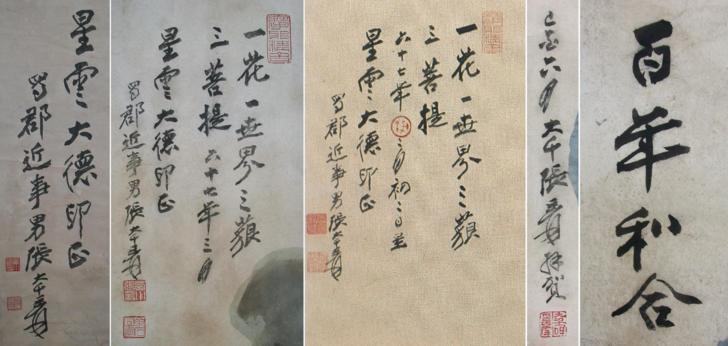 星雲大德印正
蜀郡近事男張大千爰
一花一世界三藐
三菩提 六十七年三月
星雲大德印正
蜀郡近事男張大千爰
一花一世界三藐
三菩提
六十七年三月初三日並
星雲大德印正
蜀郡近事男張大千爰
己酉六月大千張爰拜賀
百年和合